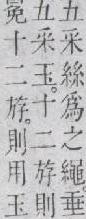 五采絲爲之繩垂
五采玉。十二斿則
冕十二斿。則用玉